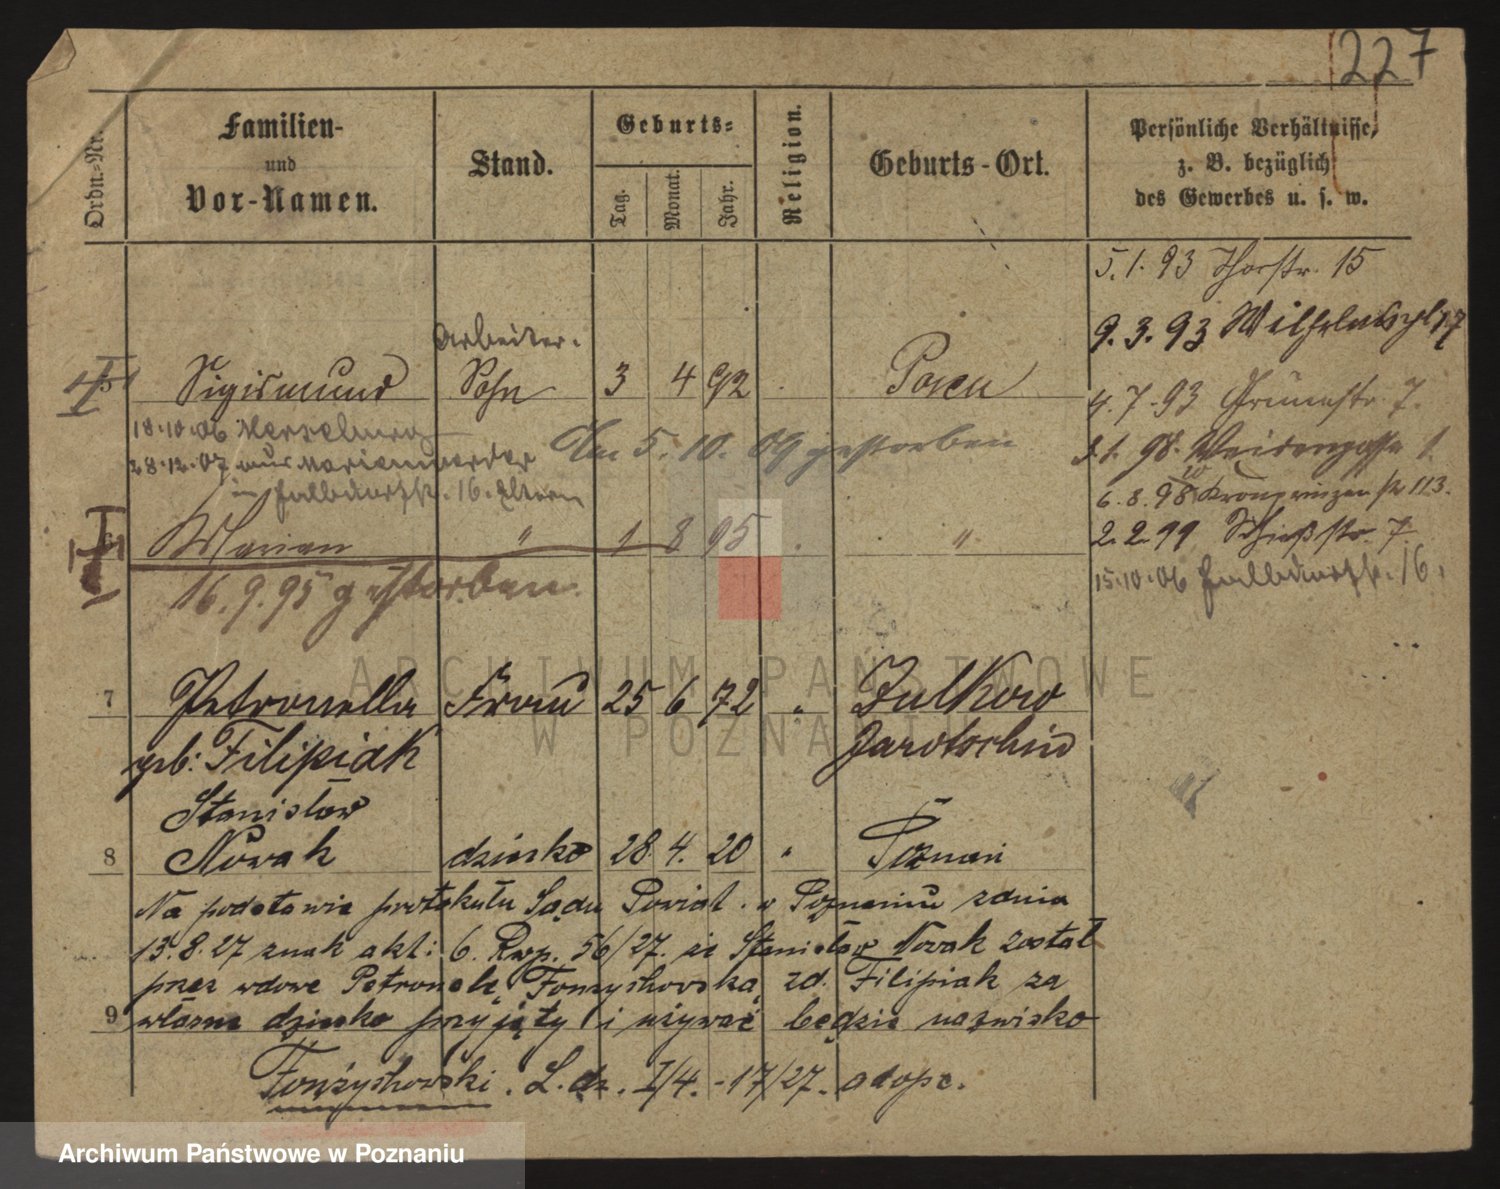 227
Ordn.-Nr.
Familien-
und
Vor-Namen.
Stand.
Geburts-
Tag.
Monat.
Jahr.
Religion.
Geburts-Ort.
Persönliche Verhältnisse,
z. B. bezüglich
des Gewerbes u. s. w.
5.1.93 Thorstr. 15
9.3.93 Wilhelmspl 17
Arbeiter-
Sigismund Sohn 3 4 92 Posen
4.7.93 Grünestr. 7.
18.10.06 Merseburg
Am 5.10.09 gestorben
3.1.98. Weidengasse 1.
28.12.07 aus Marienwerder
in Halbdorfstr. 16. Eltern
6.8.98 Kronprinzenstr 113.
Marian " 1 8 95 "
2.2.99 Schießstr. 7.
15.10.06 Halbdorfstr. 16.
16.9.95 gestorben.
7 Petronella Frau 25 6 72 " Zulkow
geb: Filipiak Jarotschin
Stanisław
8 Nowak dziecko 28. 4. 20 " Poznań
Na podstawie protokułu Sądu Powiat. w Poznaniu z dnia
13.8.27 znak akt: 6. Rwp. 56/27. iż Stanisław Nowak został
przez wdowę Petronelę Fonżychowską zd. Filipiak za
9 własne dziecko przyjęty i używać będzie nazwisko
Fonżychowski. L. dz. I/4. -17/27. adopc.
ARCHIWUM PAŃSTWOWE
W POZNANIU
Archiwum Państwowe w Poznaniu